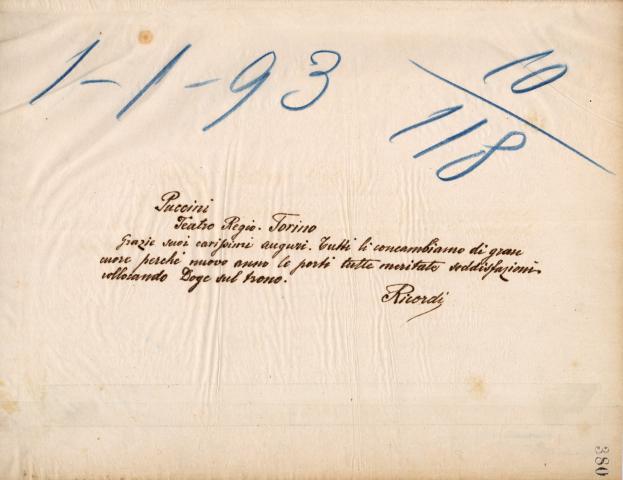 1-1-93
10/118
Puccini
Teatro Regio. Torino
Grazie suoi carissimi auguri. Tutti li concambiamo di gran
cuore perchè nuovo anno le porti tutte meritate soddisfazioni
collocando Doge sul trono.
Ricordi
380